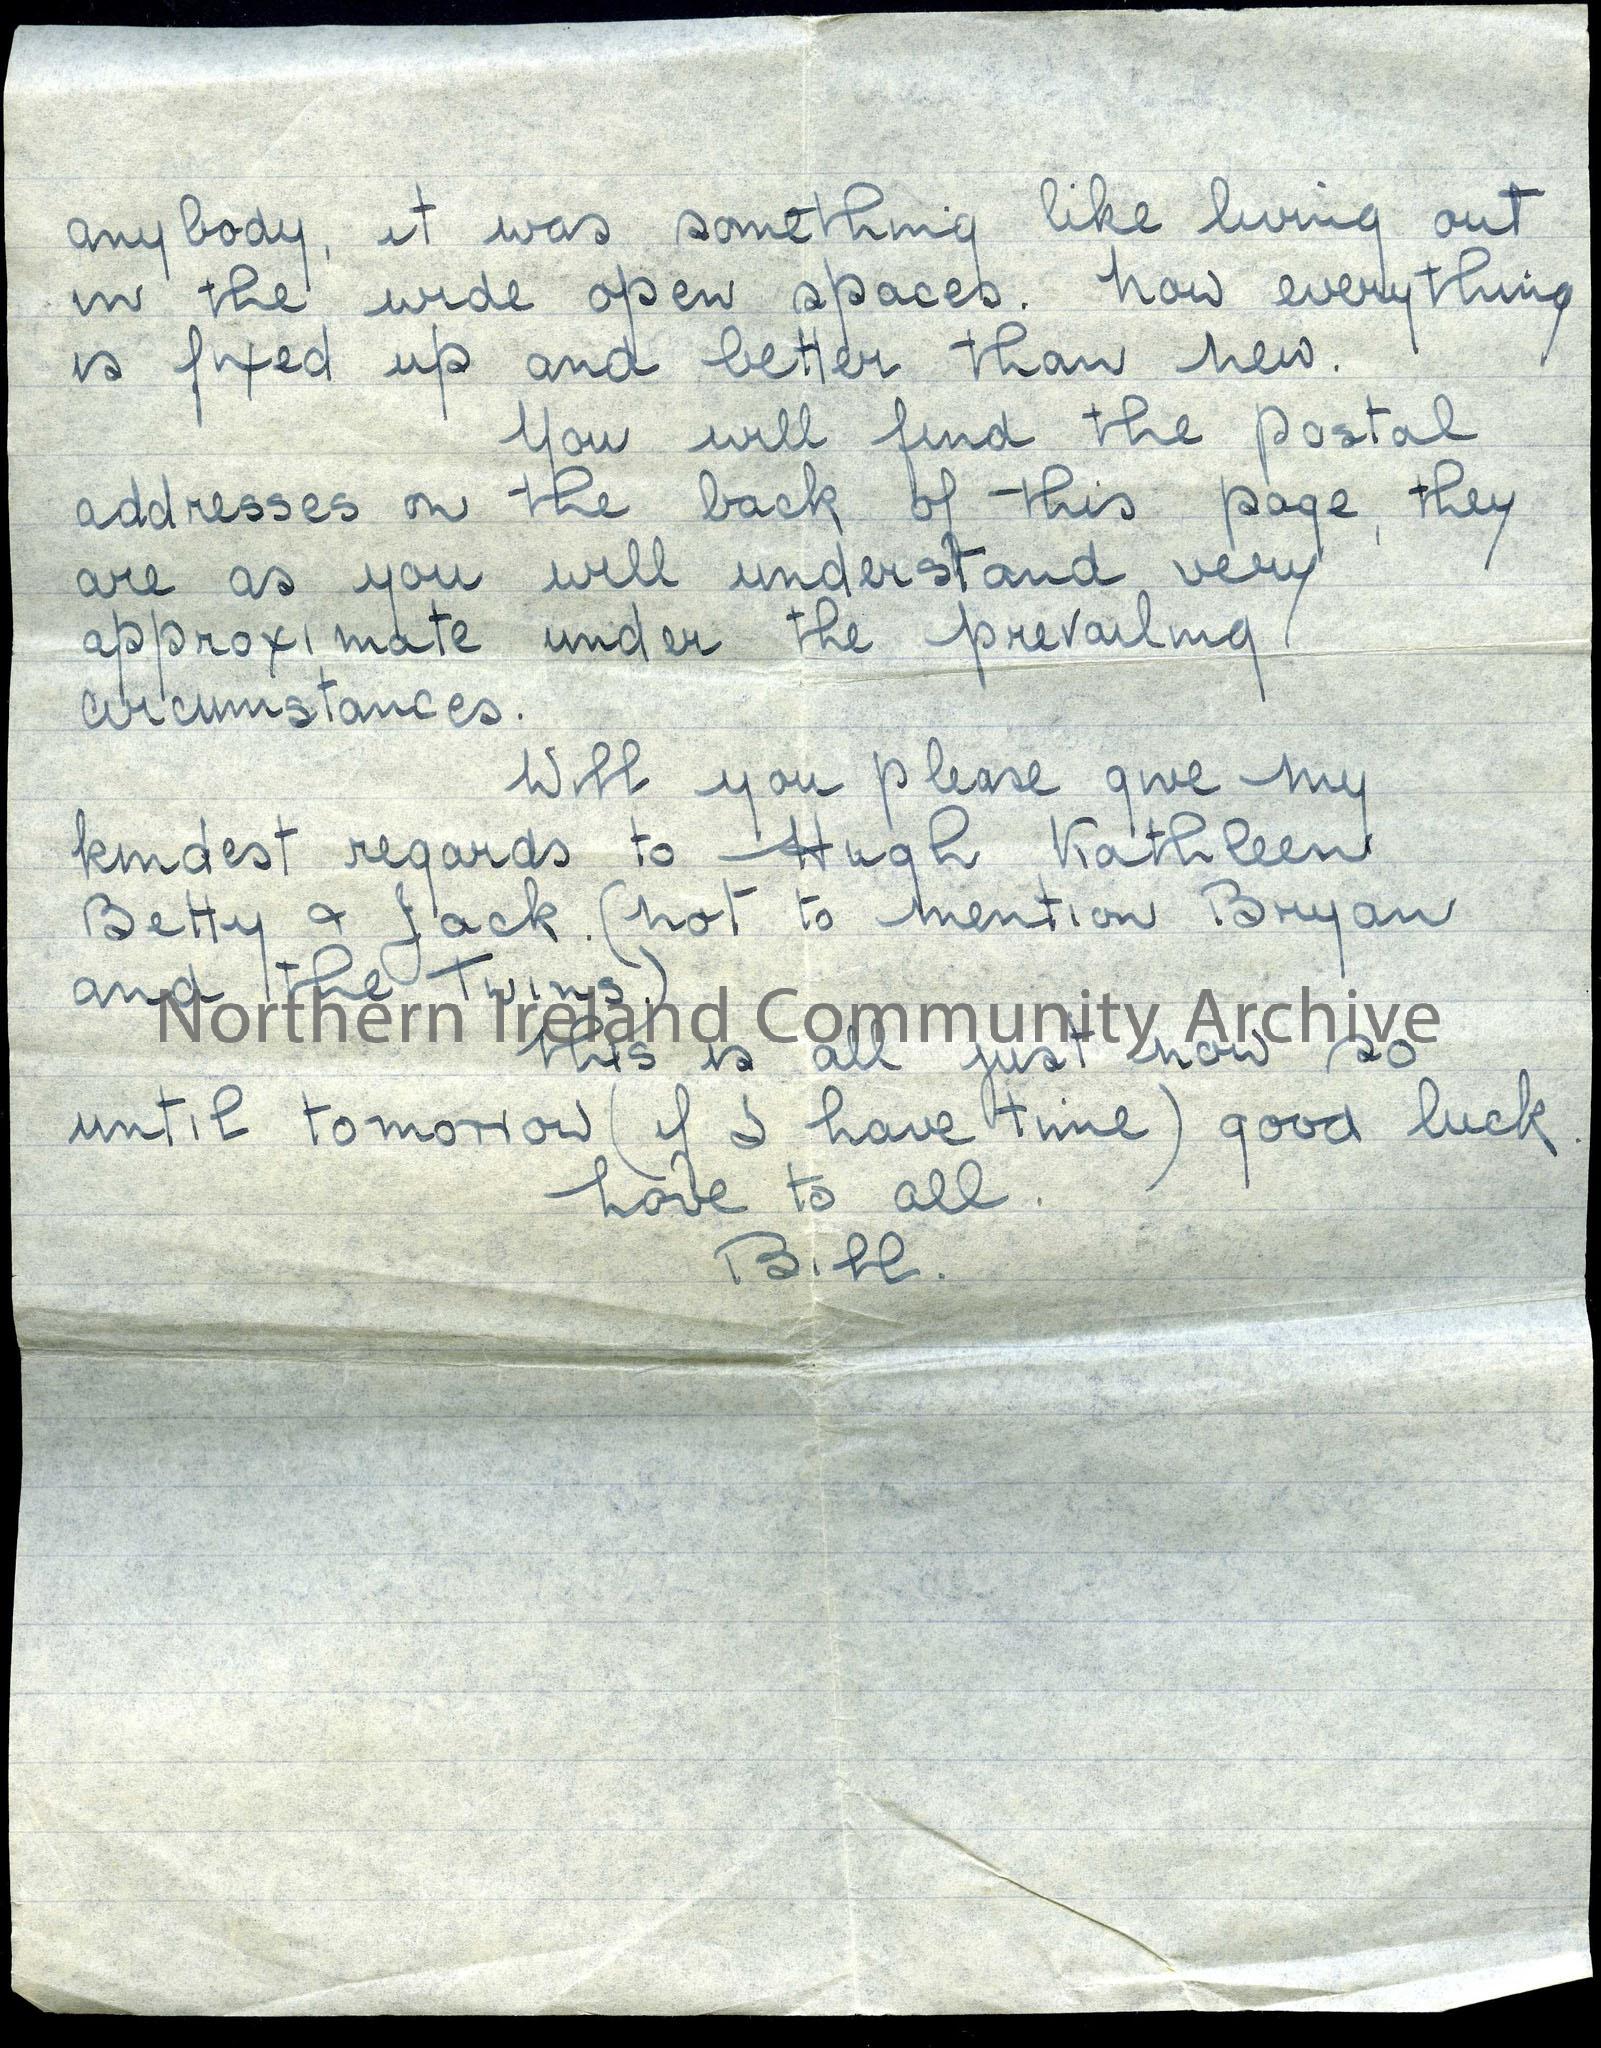 anybody, it was something like living out
in the wide open spaces. Now everything
is fixed up and better than new.
You will find the postal
addresses on the back of this page, they
are as you will understand very
approximate under the prevailing
circumstances.
Will you please give my
kindest regards to Hugh Kathleen
Betty & Jack. (not to mention Bryan
and the Twins.)
Northern Ireland Community Archive
This is all just now so
until tomorrow (if I have time) good luck.
Love to all.
Bill.